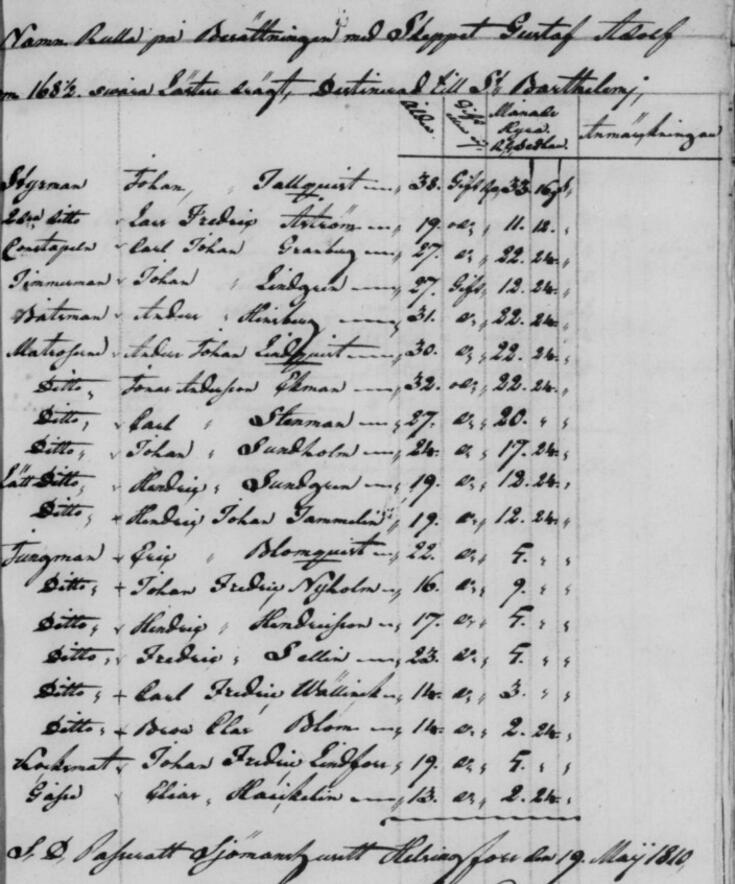 Namn Rulla på Besättningen med Skeppet Gustaf Adolf
om 168½ svåra Läster drägt, Destinerad till St Barthelemj,
Ålder. Gift eller ej. Månads Hyra. Anmärkningar
Styrman Johan, " Tallquist — " 38. Gift 33. 16
2dra Ditto " Lars Fredric Åström — " 19. og " 11. 12. "
Constapeln " Carl Johan Granberg — " 27. o " 22. 24. "
Timmerman " Johan " Lindgren — " 27. Gift " 12. 24. "
Båtsman " Anders " Hinsberg — " 31. o " 22. 24. "
Matroserne " Anders Johan Lindquist — " 30. o " 22. 24. "
Ditto, " Jonas Andersson Ekman — " 32. og " 22. 24. "
Ditto, " Carl " Stenman — " 27. o " 20. " "
Ditto, " Johan " Sundholm — " 24. o " 17. 24. "
Lätt Ditto, " Hendric " Sundgren — " 19. o " 12. 24. "
Ditto, + Hendric Johan Tammelin " 19. o " 12. 24. "
Jungman " Eric " Blomquist — " 22. o " 5. " "
Ditto, + Johan Fredric Nyholm — " 16. o " 9. " "
Ditto, " Hindric " Hendricsson — " 17. o " 5. " "
Ditto, " Fredric " Sellin — " 23. o " 5. " "
Ditto, + Carl Fredric Wallinck — " 14. o " 3. " "
Ditto, + Clas Blom — " 14. o " 2. 24. "
Kocksmat " Johan Fredric Lindfors " 19. o " 5. " "
Gåsse " Elias " — " 13. o " 2. 24. "
S. D. Passeratt Sjömanshusett Helsingfors den 19. Maij 1810,